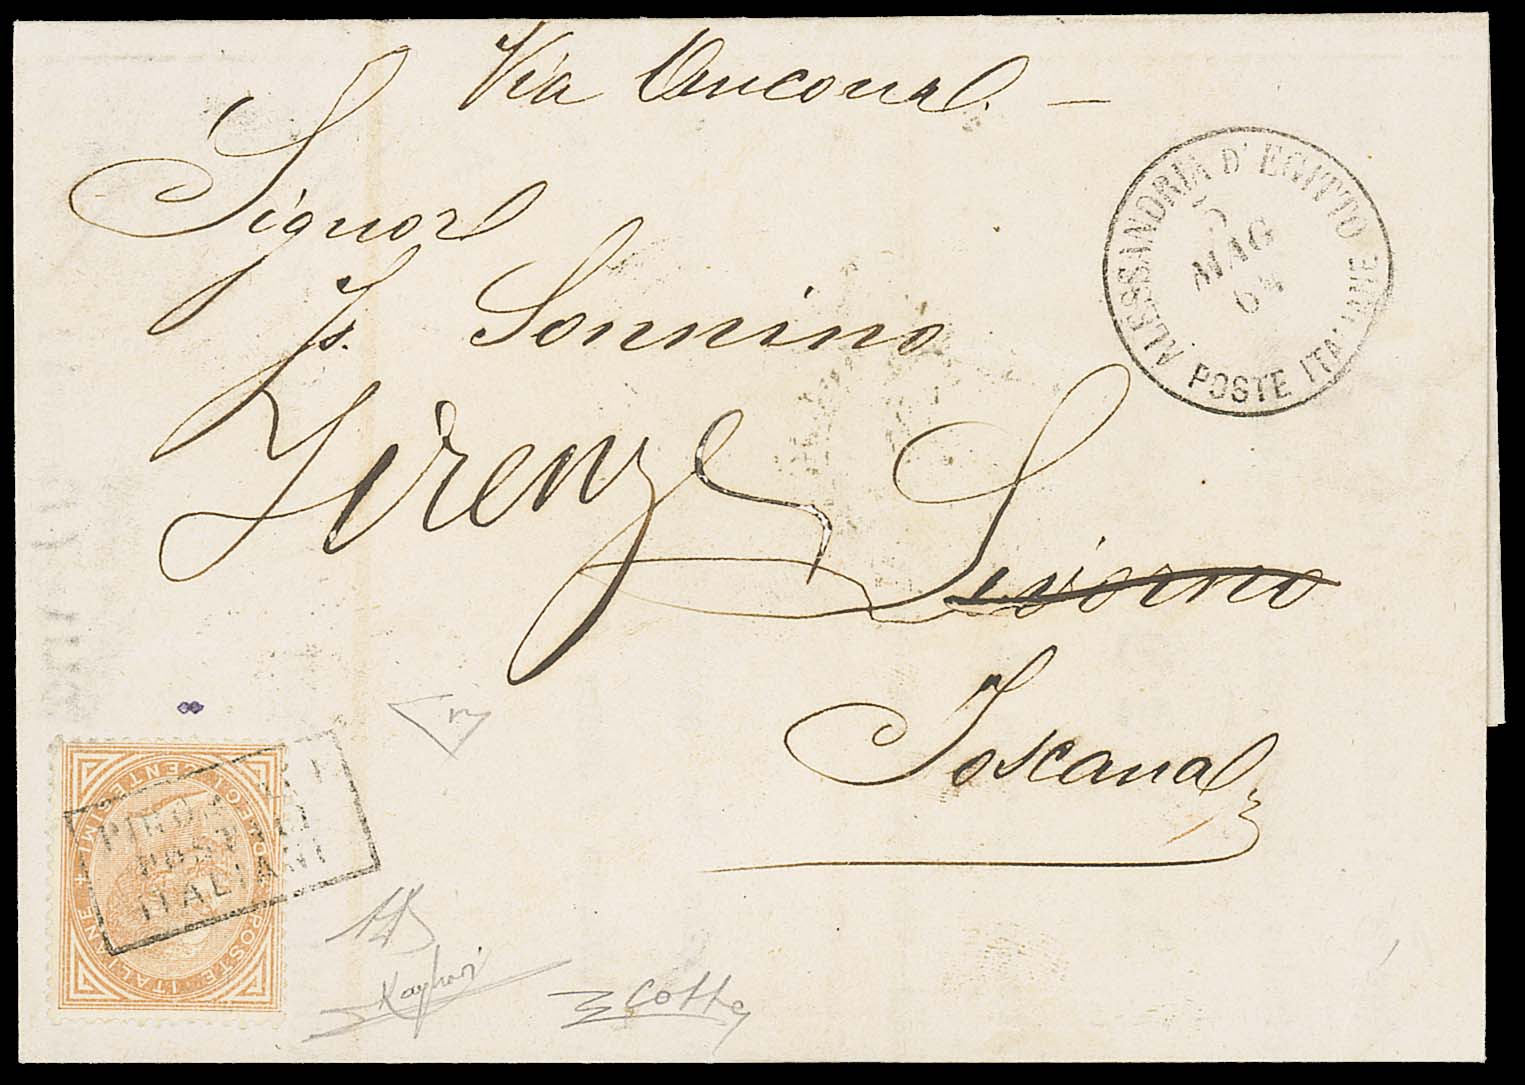 Via Ancona
ALESSANDRIA D'EGITTO
5
MAG
64
POSTE ITALIANE
Signor
Is. Sonnino
Firenze
Livorno
Toscana
PIROSCAFI
POSTALI
ITALIANI
POSTE ITALIANE
DIECI CENTESIMI
Cotte